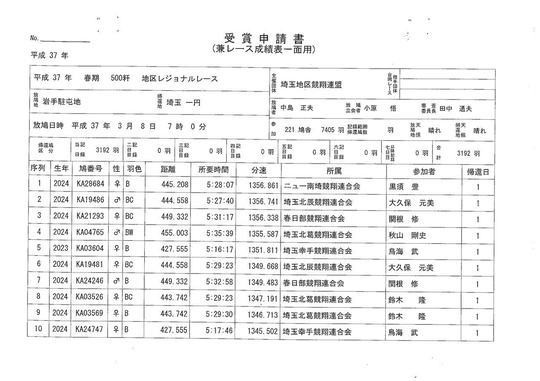 No.
受賞申請書
(兼レース成績表一面用)
平成 37 年
平成 37 年 春期 500粁 地区レジョナルレース
主催団体 埼玉地区競翔連盟
放鳩地 岩手駐屯地 帰還地 埼玉 一円
放鳩者 中島 正夫 放鳩立会者 小原 悟 審査委員長 田中 通夫
放鳩日時 平成 37 年 3 月 8 日 7 時 0 分
参加 221 鳩舎 7405 羽 記録範囲帰還鳩数 羽 放鳩地天候 晴れ 帰還地天候 晴れ
帰還鳩区分 当日記録 3192 羽 二日目記録 0 羽 三日目記録 0 羽 四日目記録 0 羽 五日目記録 0 羽 六日目記録 0 羽 七日目 0 羽 合計 3192 羽
序列 生年 鳩番号 性 羽色 距離 所要時間 分速 所属 参加者 帰還日
1 2024 KA28684 ♀ B 445.208 5:28:07 1356.861 ニュー南埼競翔連合会 黒須 豊 1
2 2024 KA19486 ♂ BC 444.558 5:27:40 1356.741 埼玉北辰競翔連合会 大久保 元美 1
3 2024 KA21293 ♀ BC 449.332 5:31:17 1356.338 春日部競翔連合会 関根 修 1
4 2024 KA04765 ♂ BW 455.003 5:35:39 1355.587 埼玉北葛競翔連合会 秋山 剛史 1
5 2023 KA03604 ♀ B 427.555 5:16:17 1351.811 埼玉幸手競翔連合会 鳥海 武 1
6 2024 KA19481 ♀ BC 444.558 5:29:23 1349.668 埼玉北辰競翔連合会 大久保 元美 1
7 2024 KA24246 ♂ B 449.332 5:32:58 1349.483 春日部競翔連合会 関根 修 1
8 2024 KA03526 ♀ BC 443.742 5:29:23 1347.191 埼玉北葛競翔連合会 鈴木 隆 1
9 2024 KA03569 ♀ B 443.742 5:29:30 1346.713 埼玉北葛競翔連合会 鈴木 隆 1
10 2024 KA24747 ♀ B 427.555 5:17:46 1345.502 埼玉幸手競翔連合会 鳥海 武 1